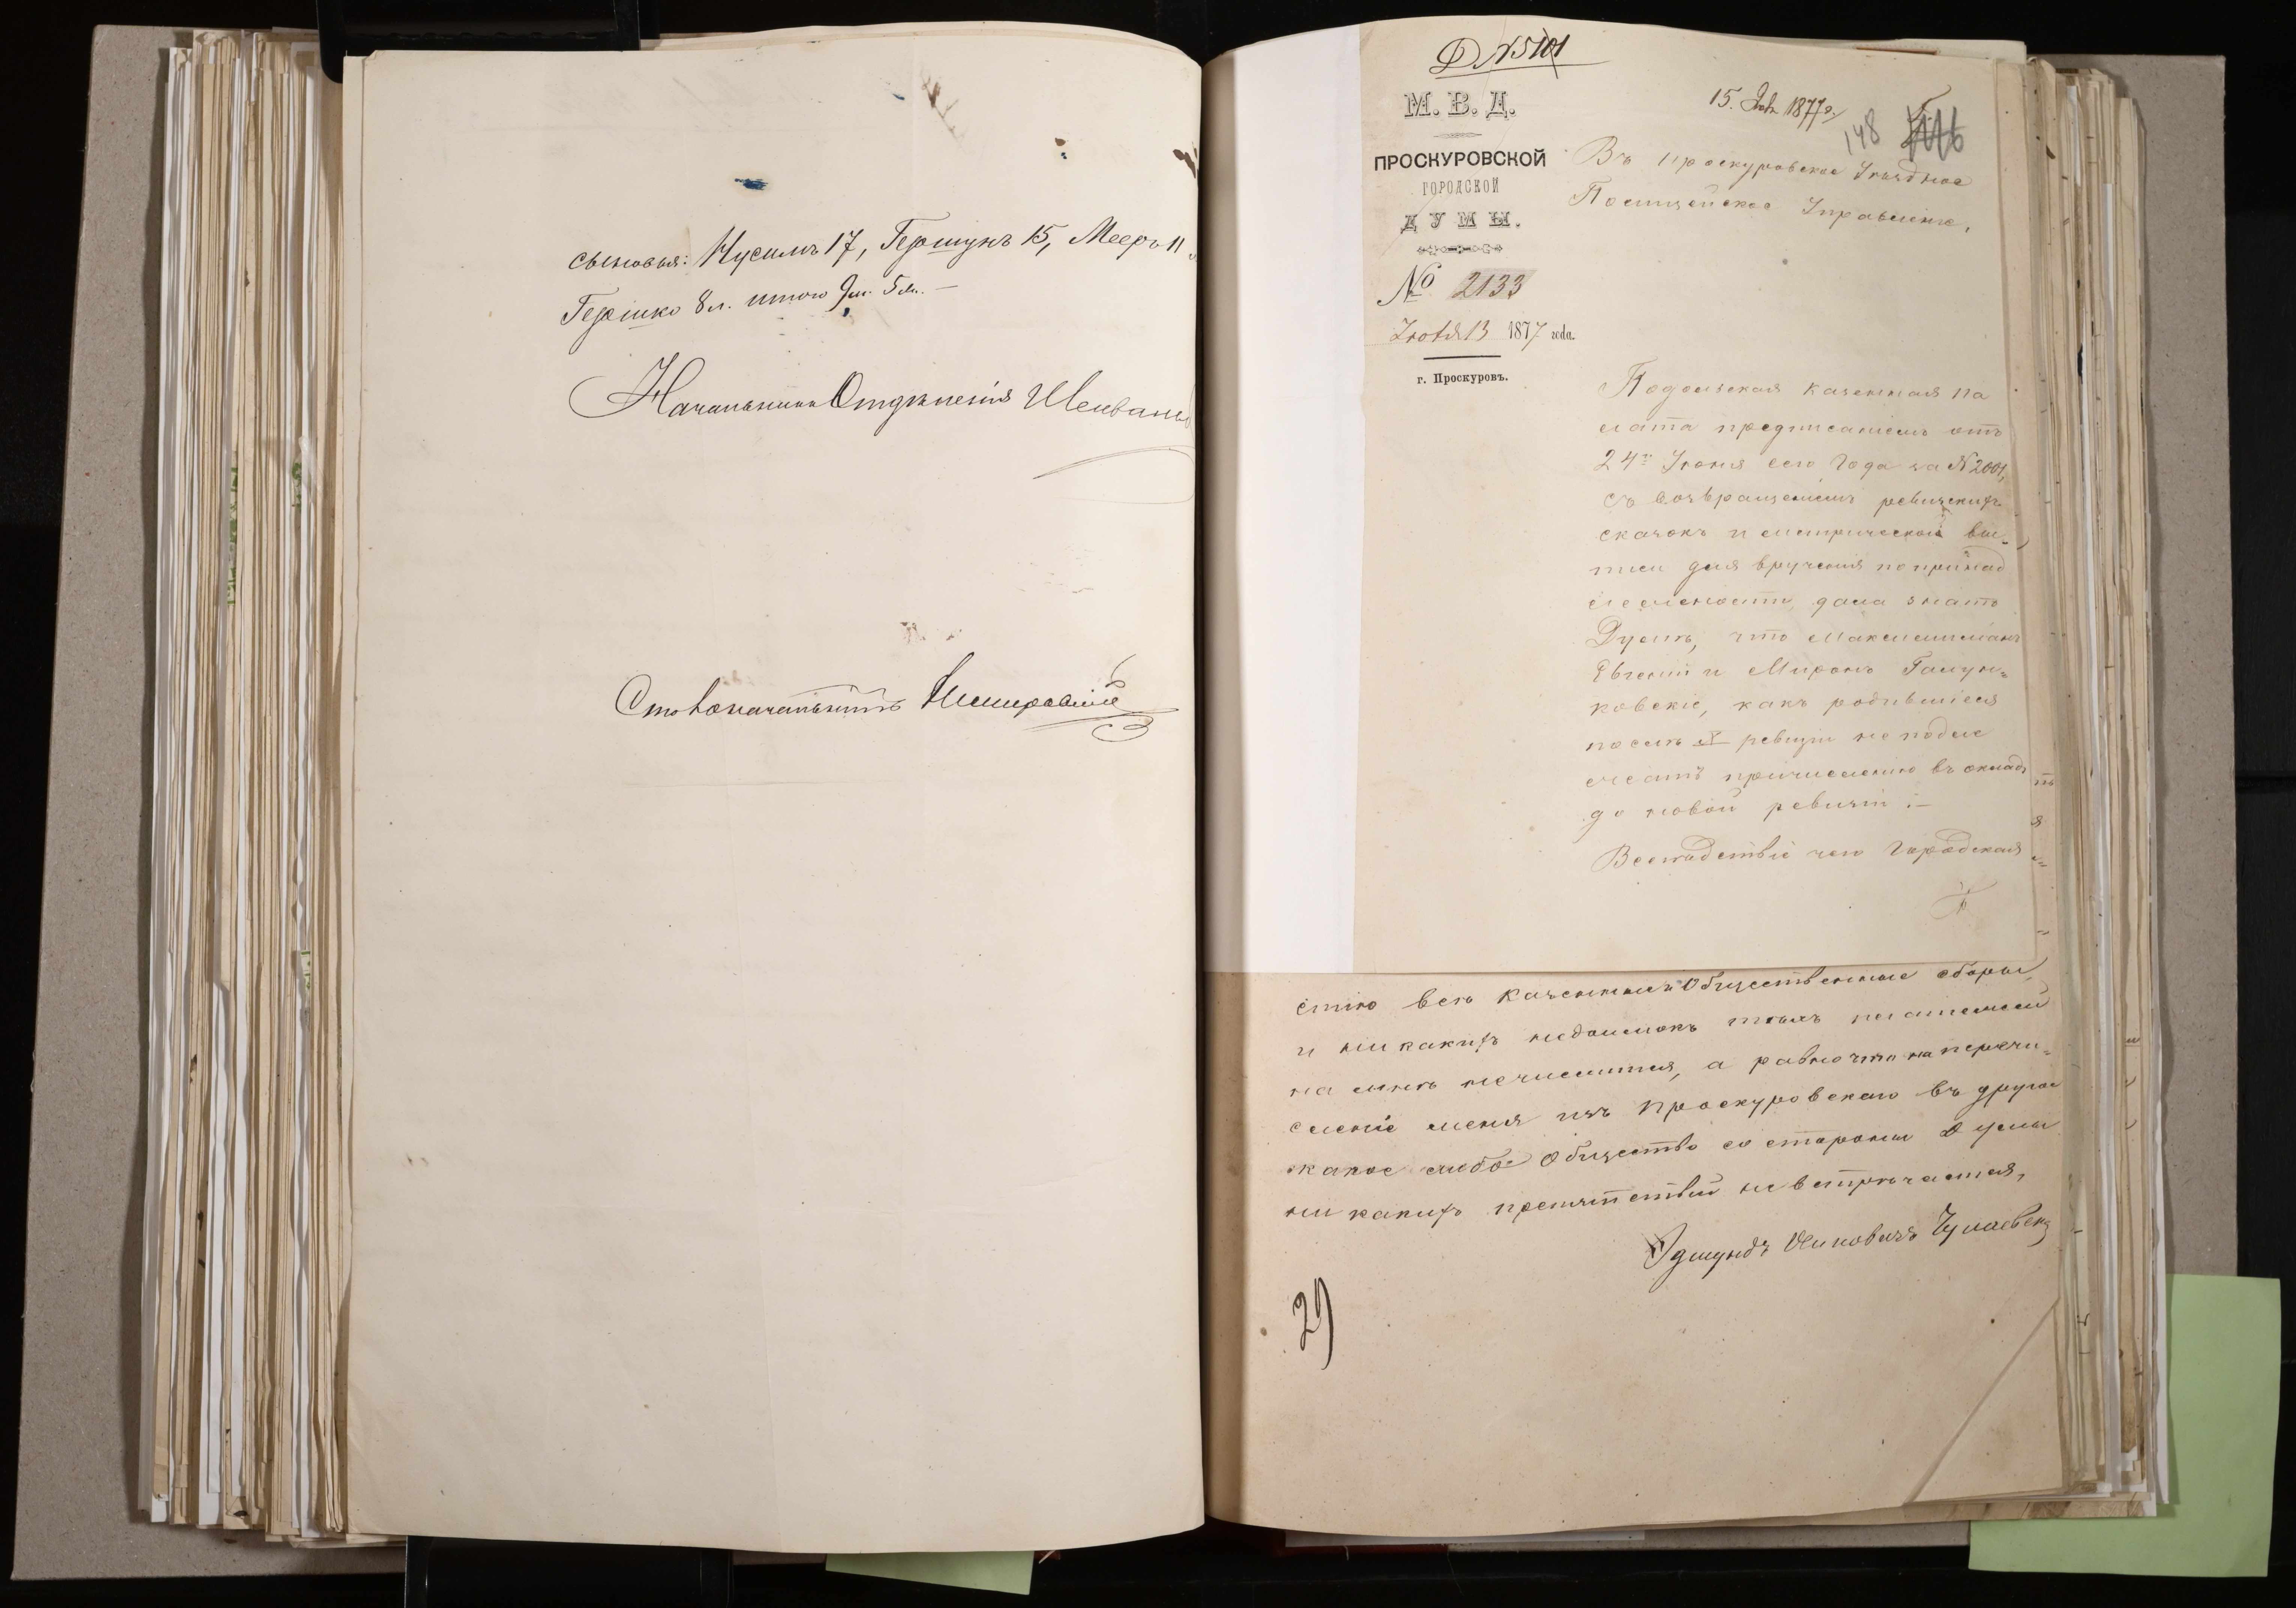 сыновья: Нусимъ 17, Гершунъ 15, Мееръ 11
Гершко 8 л. итого 9 м. 5 ж. —
Начальникъ Отдѣленія
Столоначальникъ
Д №5101
М. В. Д.
ПРОСКУРОВСКОЙ
ГОРОДСКОЙ
ДУМЫ.
№ 2133
Іюля 13 1877 года.
г. Проскуровъ.
15. Іюл 1877 г.
148
Въ Проскуровское Уѣздное
Полицейское Управленіе,
Подольская казенная па
лата предписаніемъ отъ
24го Іюня сего года за №2001,
съ возвращеніемъ ревизскихъ
сказокъ и метрической вы-
писи для врученія по принад
лежности, дала знать
Думѣ, что Максимиліанъ
Евгеній и Миронъ Галун-
ковскіе, какъ родившіеся
послѣ X ревизіи не подле
жатъ причисленію въ окладъ
до новой ревизіи :—
Вслѣдствіе чего Городская
стію всѣ казенныя и Общественные сборы,
и никакихъ недоимокъ тѣхъ платежей
на мнѣ нечислится, а равно что на перечи-
сленіе меня изъ Проскуровскаго въ другое
какое либо Общество со стороны Думы
никакихъ препятствій не встрѣчается,
Эдмундъ
29)